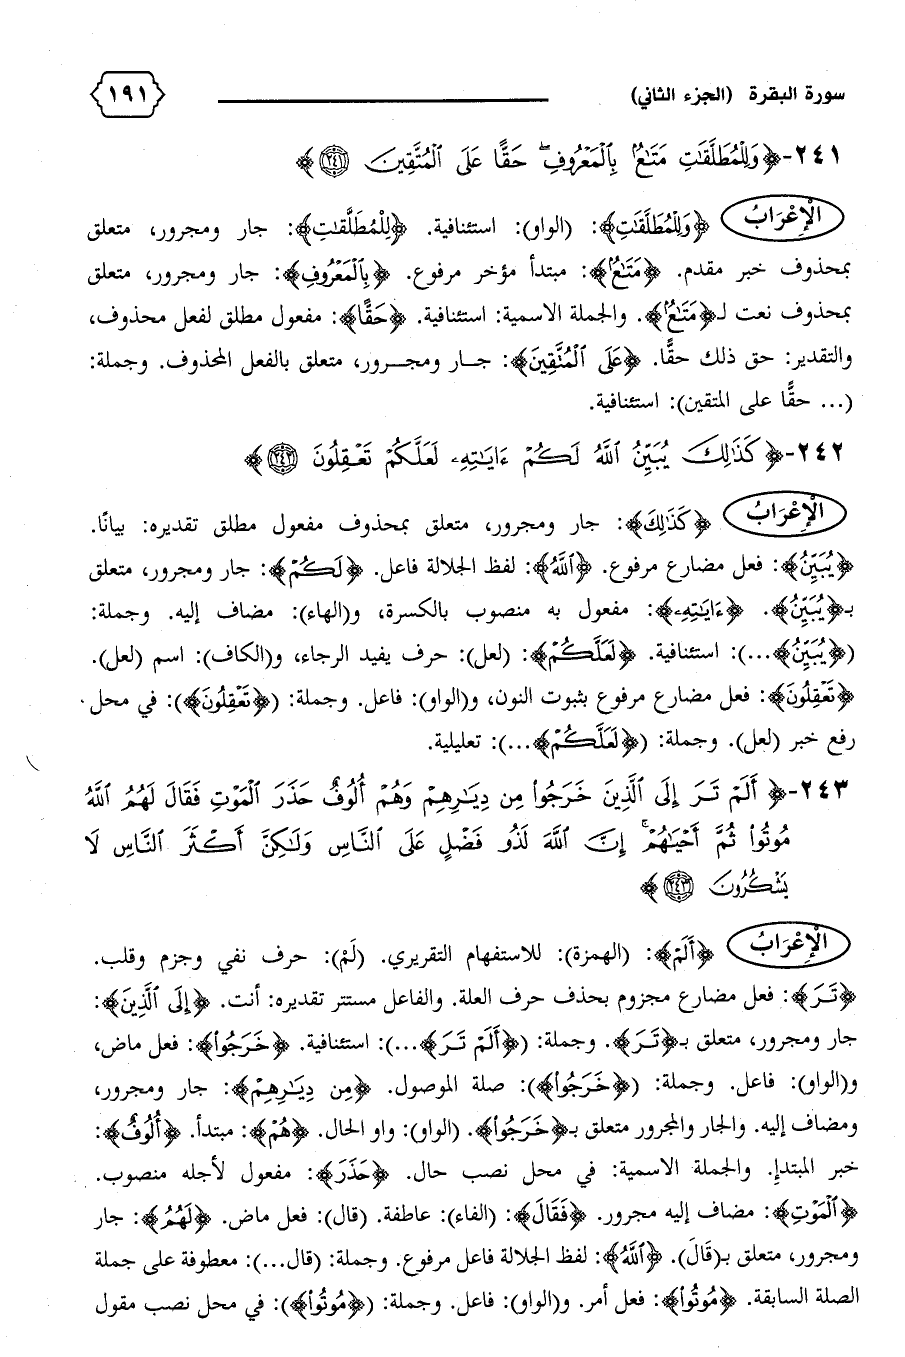 سورة البقرة (الجزء الثاني) ١٩١
٢٤١-﴿وَلِلْمُطَلَّقَٰتِ مَتَٰعٌۢ بِٱلْمَعْرُوفِ ۖ حَقًّا عَلَى ٱلْمُتَّقِينَ ٢٤١﴾
الْإِعْرَابُ ﴿وَلِلْمُطَلَّقَٰتِ﴾: (الواو): استئنافية. ﴿لِلْمُطَلَّقَٰتِ﴾: جار ومجرور، متعلق
بمحذوف خبر مقدم. ﴿مَتَٰعٌۢ﴾: مبتدأ مؤخر مرفوع. ﴿بِٱلْمَعْرُوفِ﴾: جار ومجرور، متعلق
بمحذوف نعت لـ﴿مَتَٰعٌۢ﴾. والجملة الاسمية: استئنافية. ﴿حَقًّا﴾: مفعول مطلق لفعل محذوف،
والتقدير: حق ذلك حقًّا. ﴿عَلَى ٱلْمُتَّقِينَ﴾: جار ومجرور، متعلق بالفعل المحذوف. وجملة:
(... حقًّا على المتقين): استئنافية.
٢٤٢-﴿كَذَٰلِكَ يُبَيِّنُ ٱللَّهُ لَكُمْ ءَايَٰتِهِۦ لَعَلَّكُمْ تَعْقِلُونَ ٢٤٢﴾
الْإِعْرَابُ ﴿كَذَٰلِكَ﴾: جار ومجرور، متعلق بمحذوف مفعول مطلق تقديره: بيانًا.
﴿يُبَيِّنُ﴾: فعل مضارع مرفوع. ﴿ٱللَّهُ﴾: لفظ الجلالة فاعل. ﴿لَكُمْ﴾: جار ومجرور، متعلق
بـ﴿يُبَيِّنُ﴾. ﴿ءَايَٰتِهِۦ﴾: مفعول به منصوب بالكسرة، و(الهاء): مضاف إليه. وجملة:
(﴿يُبَيِّنُ﴾...): استئنافية. ﴿لَعَلَّكُمْ﴾: (لعل): حرف يفيد الرجاء، و(الكاف): اسم (لعل).
﴿تَعْقِلُونَ﴾: فعل مضارع مرفوع بثبوت النون، و(الواو): فاعل. وجملة: (﴿تَعْقِلُونَ﴾): في محل
رفع خبر (لعل). وجملة: (﴿لَعَلَّكُمْ﴾...): تعليلية.
٢٤٣-﴿أَلَمْ تَرَ إِلَى ٱلَّذِينَ خَرَجُوا۟ مِن دِيَٰرِهِمْ وَهُمْ أُلُوفٌ حَذَرَ ٱلْمَوْتِ فَقَالَ لَهُمُ ٱللَّهُ
مُوتُوا۟ ثُمَّ أَحْيَٰهُمْ ۚ إِنَّ ٱللَّهَ لَذُو فَضْلٍ عَلَى ٱلنَّاسِ وَلَٰكِنَّ أَكْثَرَ ٱلنَّاسِ لَا
يَشْكُرُونَ ٢٤٣﴾
الْإِعْرَابُ ﴿أَلَمْ﴾: (الهمزة): للاستفهام التقريري. (لَمْ): حرف نفي وجزم وقلب.
﴿تَرَ﴾: فعل مضارع مجزوم بحذف حرف العلة. والفاعل مستتر تقديره: أنت. ﴿إِلَى ٱلَّذِينَ﴾:
جار ومجرور، متعلق بـ﴿تَرَ﴾. وجملة: (﴿أَلَمْ تَرَ﴾...): استئنافية. ﴿خَرَجُوا۟﴾: فعل ماض،
و(الواو): فاعل. وجملة: (﴿خَرَجُوا۟﴾): صلة الموصول. ﴿مِن دِيَٰرِهِمْ﴾: جار ومجرور،
ومضاف إليه. والجار والمجرور متعلق بـ﴿خَرَجُوا۟﴾. (الواو): واو الحال. ﴿هُمْ﴾: مبتدأ. ﴿أُلُوفٌ﴾:
خبر المبتدإ. والجملة الاسمية: في محل نصب حال. ﴿حَذَرَ﴾: مفعول لأجله منصوب.
﴿ٱلْمَوْتِ﴾: مضاف إليه مجرور. ﴿فَقَالَ﴾: (الفاء): عاطفة. (قال): فعل ماض. ﴿لَهُمُ﴾: جار
ومجرور، متعلق بـ(قَالَ). ﴿ٱللَّهُ﴾: لفظ الجلالة فاعل مرفوع. وجملة: (قال...): معطوفة على جملة
الصلة السابقة. ﴿مُوتُوا۟﴾: فعل أمر. و(الواو): فاعل. وجملة: (﴿مُوتُوا۟﴾): في محل نصب مقول